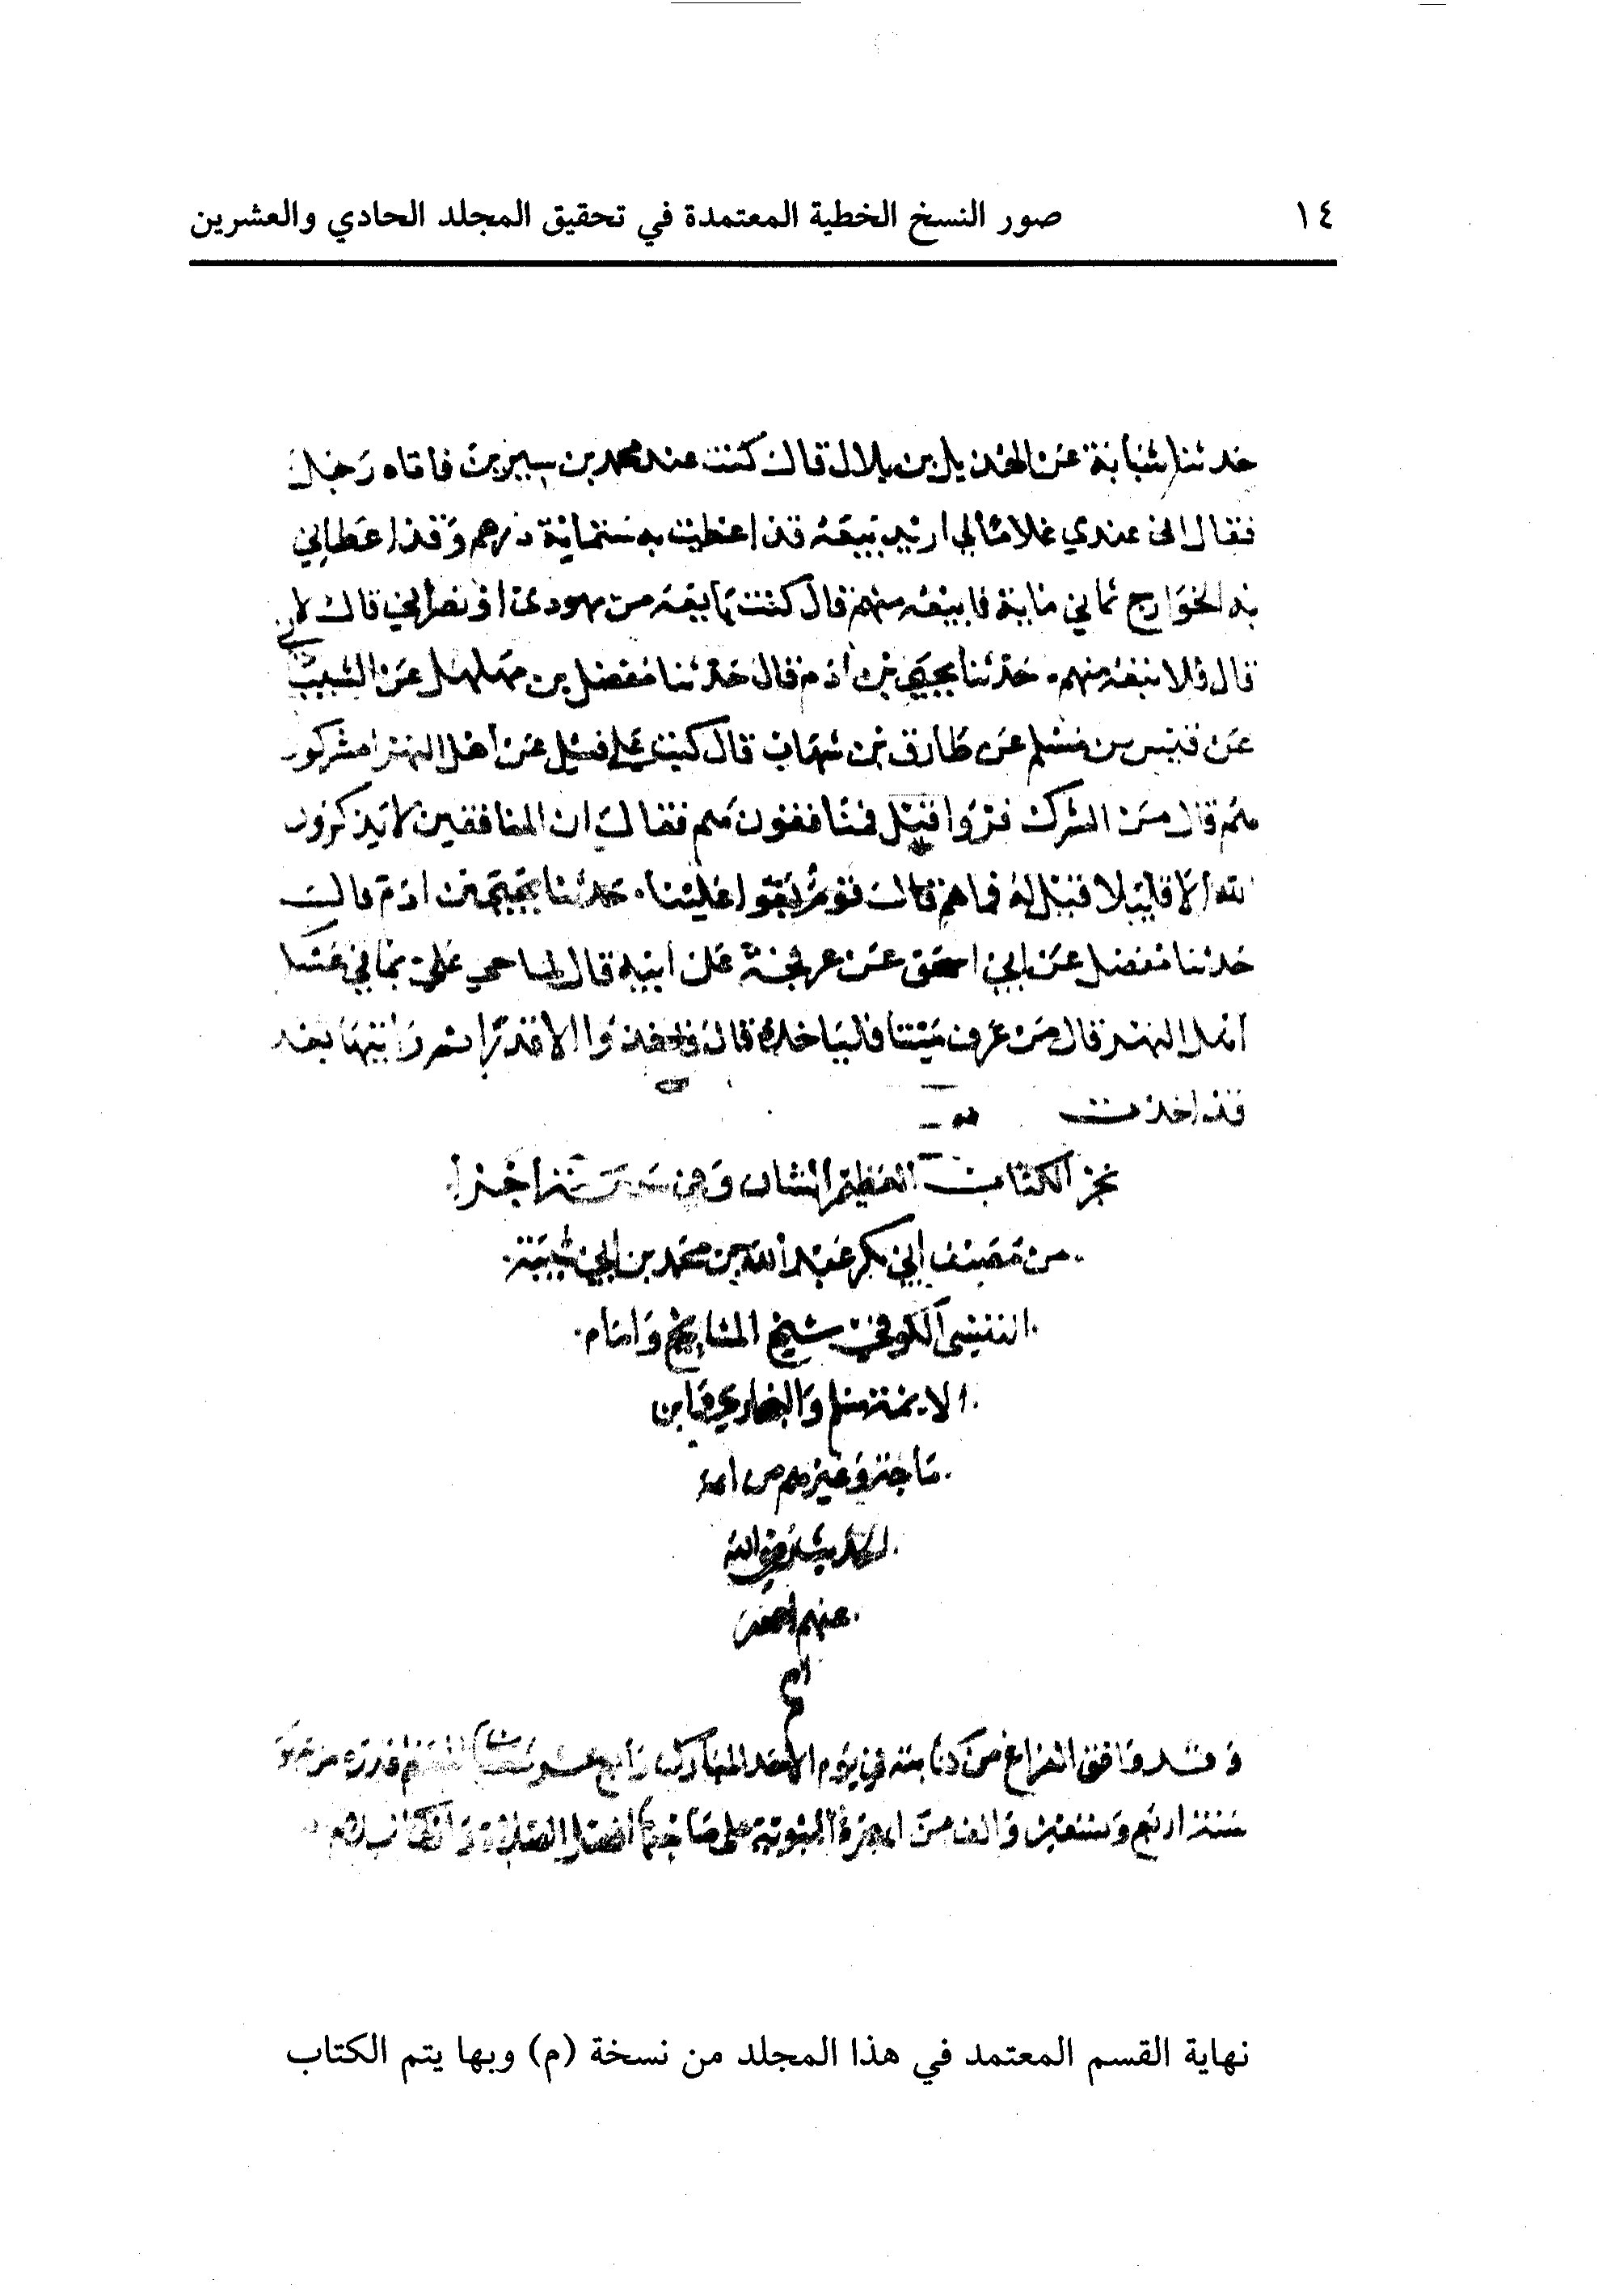 ١٤ صور النسخ الخطية المعتمدة في تحقيق المجلد الحادي والعشرين
حدثنا شبابة عن الهذيل بن بلال قال كنت عند محمد بن سيرين فاتاه رجل
فقال ان عندي غلاما لي اريد بيعه قد اعطيت به ستماية درهم وقد اعطاني
به الخوارج ثماني ماية فابيعه منهم قال كنت بايعه من يهودي او نصراني قال لا
قال فلا تبعه منهم حدثنا يحيى بن ادم قال حدثنا مفضل بن مهلهل عن الشيباني
عن قيس بن مسلم عن طارق بن شهاب قال كنت علي فسيل عن اهل النهر امشركون
هم قال من الشرك فروا قيل فمنافقون هم فقال ان المنافقين لا يذكرون
الله الا قليلا قيل له فما هم قال قوم بغوا علينا حدثنا يحيى بن ادم قال
حدثنا مفضل عن ابي اسحق عن عرفجة عن ابيه قال لما جي علي بما في عسكر
اهل النهر قال من عرف شيئا فلياخذه قال فاخذوا الا قدرا ثم رايتها بعد
قد اخذت
نجز الكتاب العظيم الشان وهي جزأ
من مصنف ابي بكر عبد الله بن محمد بن ابي شيبة
العبسي الكوفي شيخ المشايخ وامام
الايمة مسلم والبخاري وابن
ماجة وغيرهم من ائمة
الحديث رضي الله
عنهم اجمعين
ام
وقد وافق الفراغ من كتابته في يوم الاحد المبارك رابع عشر المعظم قدره من شهور
سنة اربع وسبعين والف من الهجرة النبوية على صاحبها افضل الصلاة
نهاية القسم المعتمد في هذا المجلد من نسخة (م) وبها يتم الكتاب